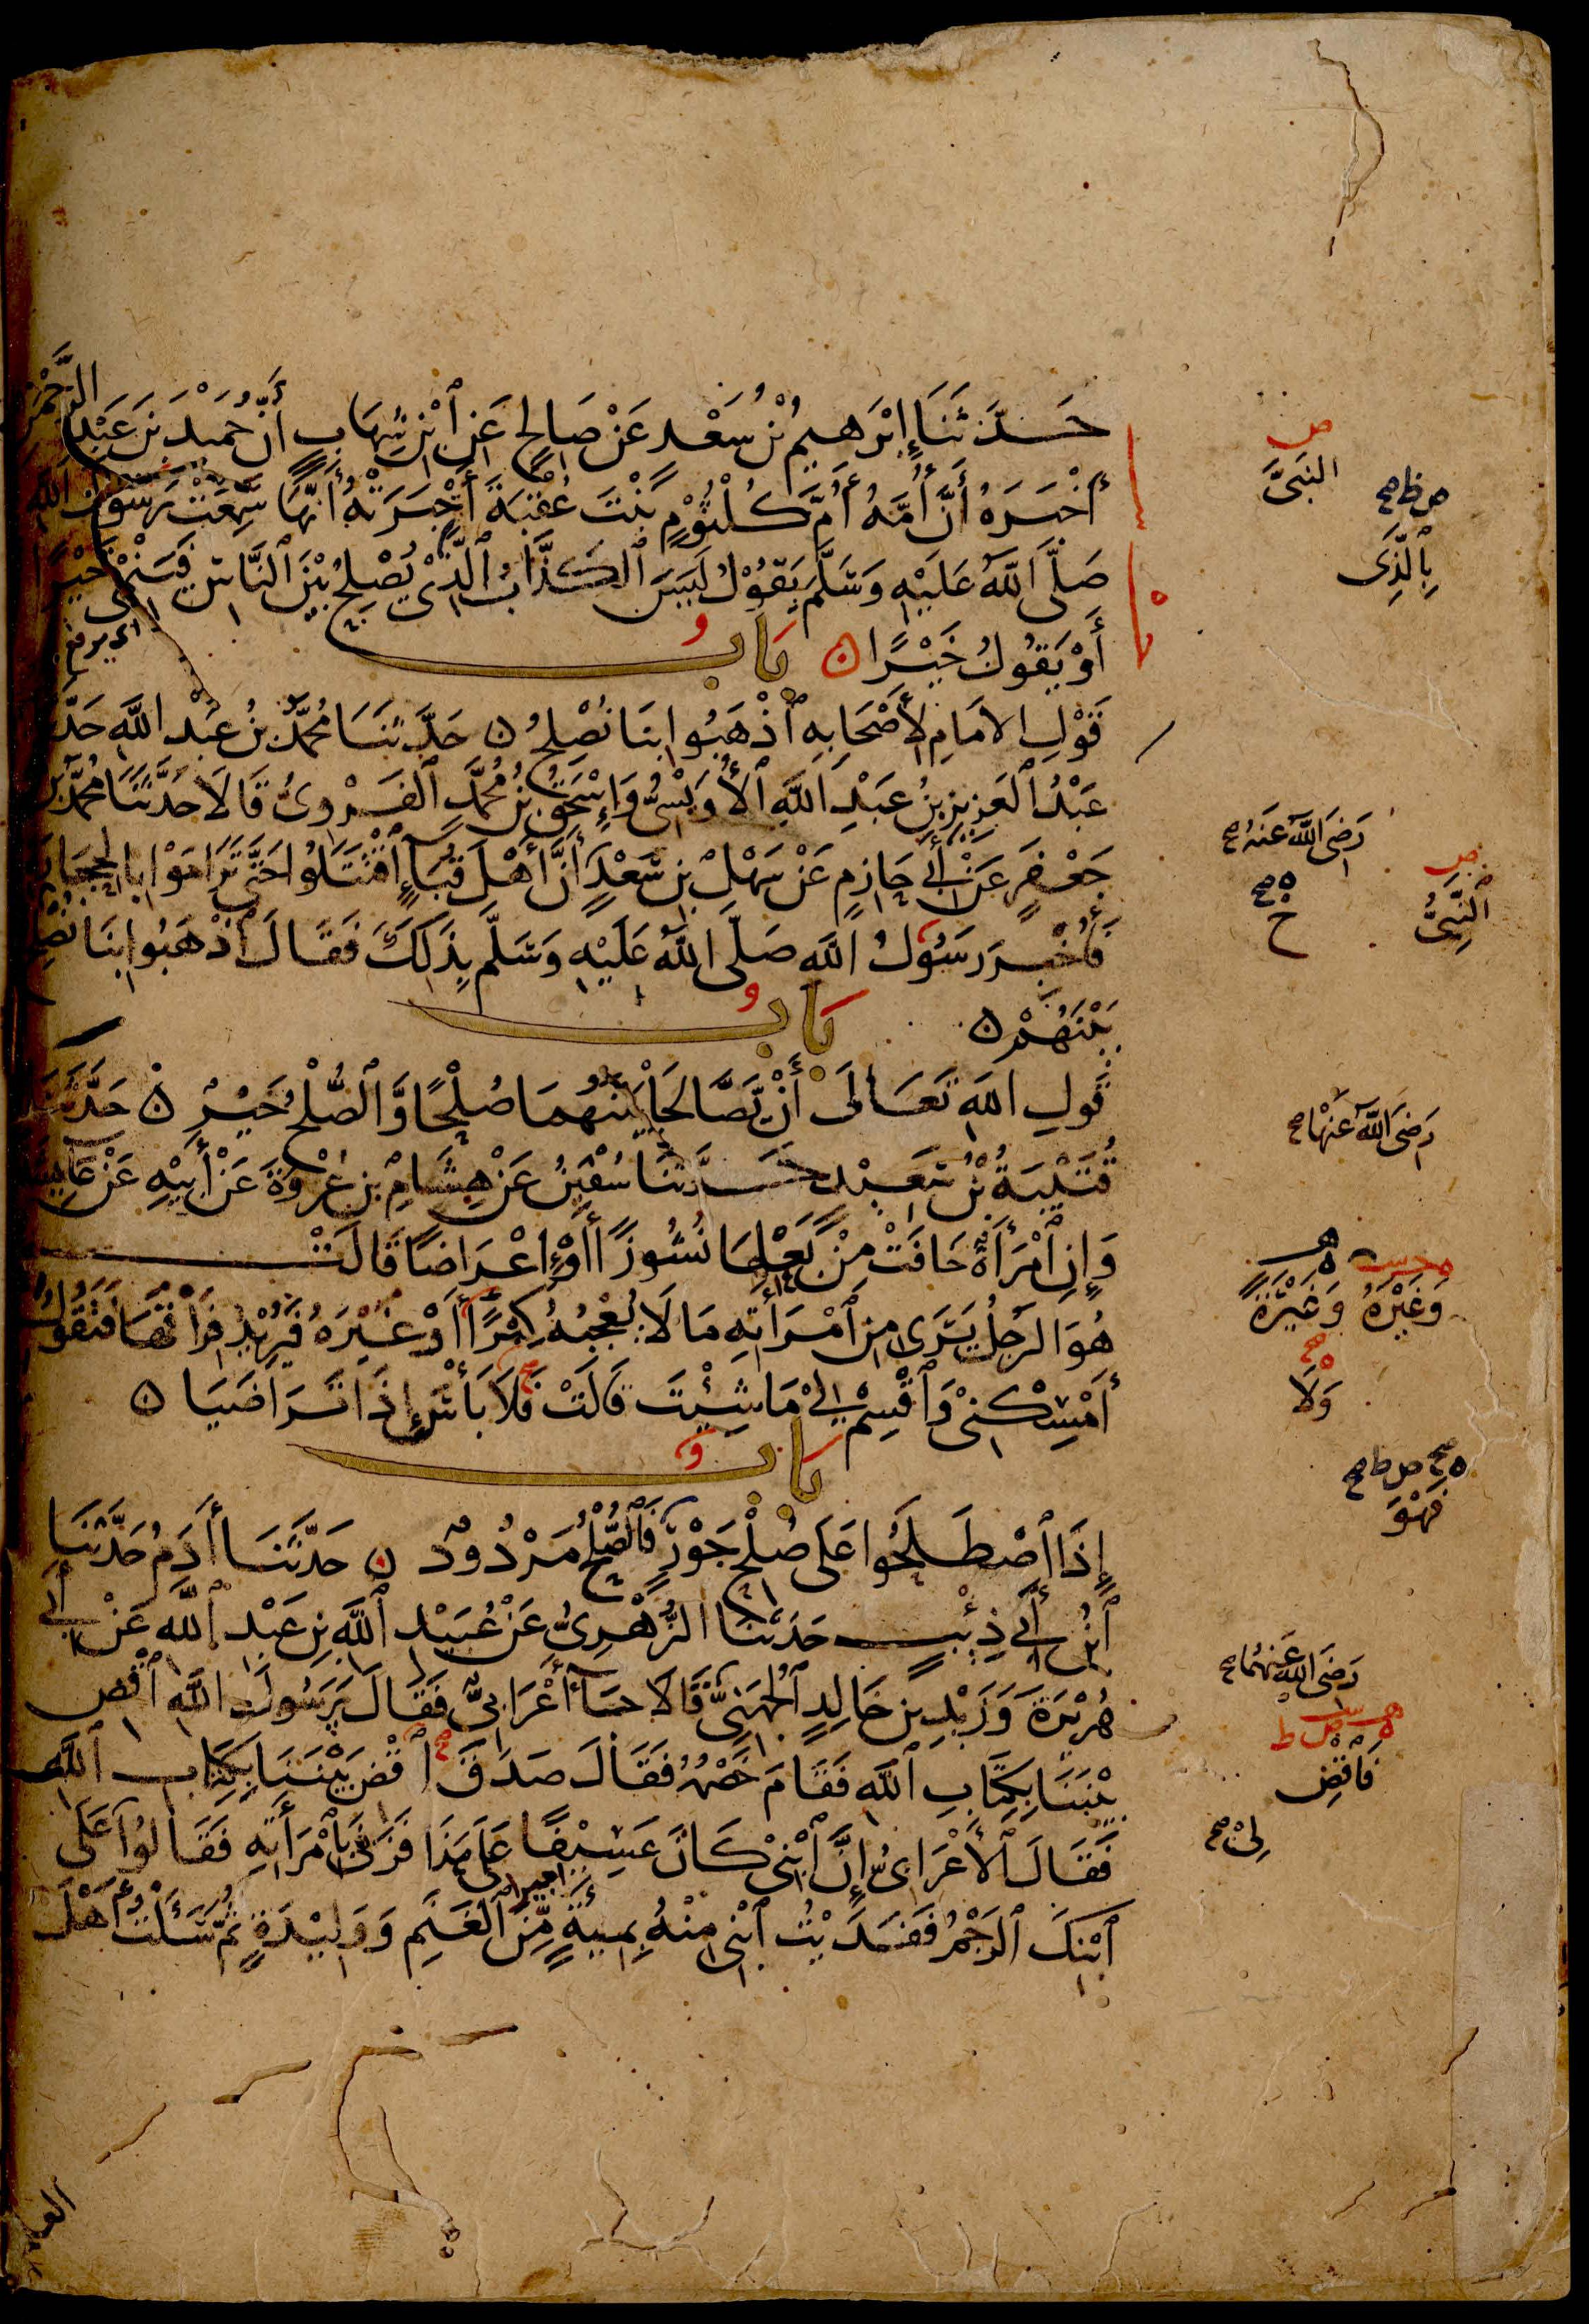 حَدَّثَنَا إِبْرَهِيمُ بْنُ سَعْدٍ عَنْ صَالِحٍ عَنِ ٱبْنِ شِهَابٍ أَنَّ حُمَيْدَ بْنَ عَبْدِ الرَّحْمٰنِ
أَخْبَرَهُ أَنَّ أُمَّهُ أُمَّ كُلْثُوْمٍ بِنْتَ عُقْبَةَ أَخْبَرَتْهُ أَنَّهَا سَمِعَتْ رَسُوْلَ اللهِ
صَلَّى اللهُ عَلَيْهِ وَسَلَّمَ يَقُوْلُ لَيْسَ ٱلْكَذَّابُ ٱلَّذِيْ يُصْلِحُ بَيْنَ ٱلنَّاسِ فَيَنْمِيْ خَيْرًا
اي يرفع
أَوْ يَقُولُ خَيْرًا ٥ بَابُ
قَوْلِ الاِمَامِ لِأَصْحَابِهِ ٱذْهَبُوا بِنَا نُصْلِحُ ٥ حَدَّثَنَا مُحَمَّدُ بْنُ عَبْدِ اللَّهِ حَدَّ
عَبْدُ ٱلْعَزِيزِ بْنُ عَبْدِ اللَّهِ ٱلْأُوَيْسِيُّ وَإِسْحَقُ بْنُ مُحَمَّدٍ ٱلْفَرْوِيُّ قَالَا حَدَّثَنَا مُحَمَّدُ بْنُ
جَعْفَرٍ عَنْ أَبِي حَازِمٍ عَنْ سَهْلِ بْنِ سَعْدٍ أَنَّ أَهْلَ قُبَاءٍ ٱقْتَتَلُوا حَتَّى تَرَامَوْا بِالْحِجَارَةِ
فَأُخْبِرَ رَسُولُ اللَّهِ صَلَّى اللَّهُ عَلَيْهِ وَسَلَّمَ بِذَلِكَ فَقَالَ ٱذْهَبُوا بِنَا نُصْلِحْ
بَيْنَهُمْ ٥ بَابُ
قَوْلِ اللهِ تَعَالَى أَنْ يَصَّالَحَا بَيْنَهُمَا صُلْحًا وَالصُّلْحُ خَيْرٌ ٥ حَدَّثَنَا
قُتَيْبَةُ بْنُ سَعِيْدٍ حَدَّثَنَا سُفْيَنُ عَنْ هِشَامِ بْنِ عُرْوَةَ عَنْ أَبِيْهِ عَنْ عَائِشَةَ
وَإِنِ ٱمْرَأَةٌ خَافَتْ مِنْ بَعْلِهَا نُشُوزًا أَوْ إِعْرَاضًا قَالَتْ
هُوَ الرَّجُلُ يَرَى مِنِ ٱمْرَأَتِهِ مَا لَا يُعْجِبُهُ كِبَرًا أَوْ غَيْرَهُ فَيُرِيْدُ فِرَاقَهَا فَتَقُولُ
أَمْسِكْنِيْ وَٱقْسِمْ لِيْ مَا شِئْتَ قَالَتْ فَلَا بَأْسَ إِذَا تَرَاضَيَا ٥
بَابُ
إِذَا ٱصْطَلَحُوا عَلَى صُلْحِ جَوْرٍ فَالصُّلْحُ مَرْدُودٌ ٥ حَدَّثَنَا أَدَمُ حَدَّثَنَا
ٱبْنُ أَبِي ذِئْبٍ حَدَّثَنَا الزُّهْرِيُّ عَنْ عُبَيْدِ ٱللَّهِ بْنِ عَبْدِ ٱللَّهِ عَنْ أَبِي
هُرَيْرَةَ وَزَيْدِ بْنِ خَالِدٍ ٱلْجُهَنِيِّ قَالَا جَاءَ أَعْرَابِيٌّ فَقَالَ يَرَسُولَ اللَّهِ ٱقْضِ
بَيْنَنَا بِكِتَابِ ٱللَّهِ فَقَامَ خَصْمُهُ فَقَالَ صَدَقَ ٱقْضِ بَيْنَنَا بِكِتَابِ ٱللَّهِ
فَقَالَ ٱلْأَعْرَابِيُّ إِنَّ ٱبْنِيْ كَانَ عَسِيْفًا عَلَى هَذَا فَزَنَى بِامْرَأَتِهِ فَقَالُوا عَلَى
اجيرا
ٱبْنِكَ ٱلرَّجْمُ فَفَدَيْتُ ٱبْنِي مِنْهُ بِمِئَةٍ مِّنَ ٱلْغَنَمِ وَوَلِيْدَةٍ ثُمَّ سَأَلْتُ أَهْلَ
ص
النَّبِيَّ
ص ط صح
بِالَّذِي
رَضِيَ اللهُ عَنْهُ صح
ص
ٱلنَّبِيُّ
رَضِيَ اللهُ عَنْهَا صح
وَغَيْرَهُ وَغَيْرَةً
وَلَا
فَهْوَ
رَضِيَ اللهُ عَنْهُمَا صح
فَاقْضِ
لِيْ صح